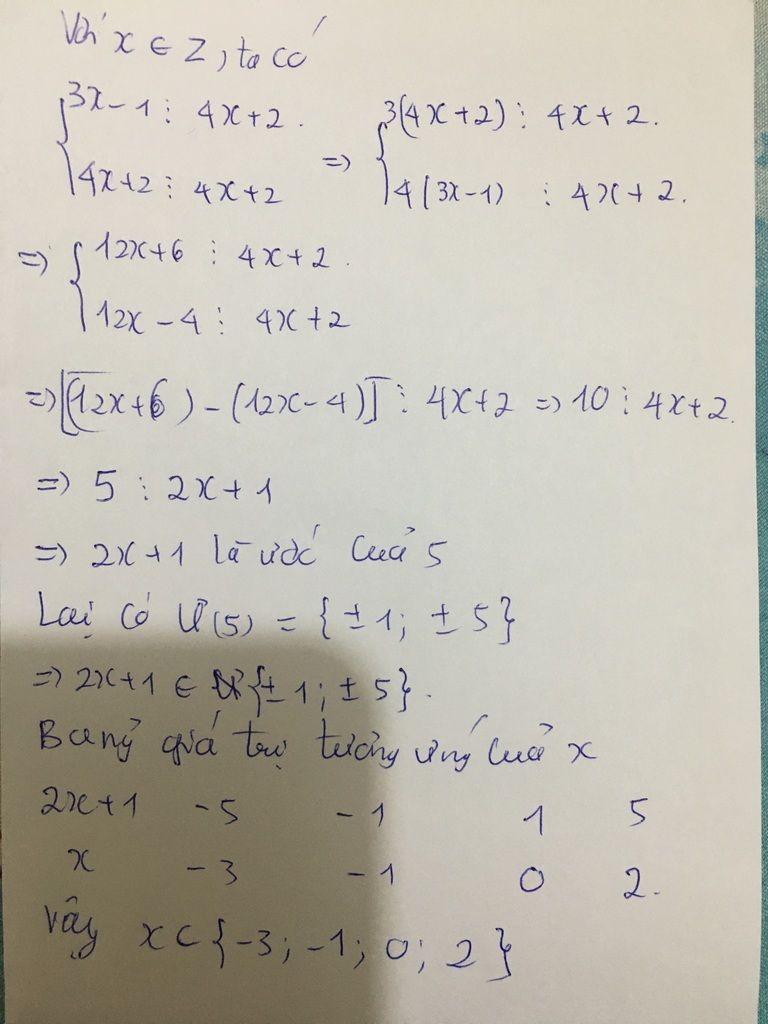 Với x ∈ Z, ta có
{ 3x - 1 ⋮ 4x + 2. => { 3(4x + 2) ⋮ 4x + 2.
{ 4x + 2 ⋮ 4x + 2 { 4(3x - 1) ⋮ 4x + 2.
=> { 12x + 6 ⋮ 4x + 2.
{ 12x - 4 ⋮ 4x + 2
=> [(12x + 6) - (12x - 4)] ⋮ 4x + 2 => 10 ⋮ 4x + 2.
=> 5 ⋮ 2x + 1
=> 2x + 1 là ước của 5
Lại có Ư(5) = {±1; ±5}
=> 2x + 1 ∈ {±1; ±5}.
Bảng giá trị tương ứng của x
2x + 1 -5 -1 1 5
x -3 -1 0 2.
Vậy x ⊂ {-3; -1; 0; 2}